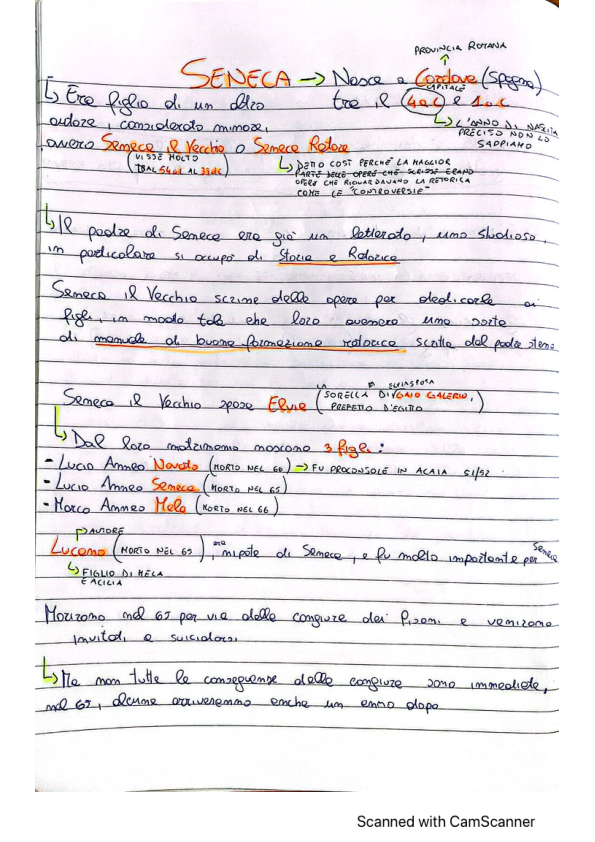 PROVINCIA ROMANA
SENECA → Nasce a Cordova (Spagna)
CAPITALE
↳ Era figlio di un altro tra il 4 a.C e 1 a.C
autore, considerato minore, ↳ L'ANNO DI NASCITA
PRECISO NON LO
SAPPIAMO
ovvero Seneca il Vecchio o Seneca Retore
(VISSE MOLTO
DAL 54 a.C AL 39 d.C)
↳ DETTO COSÌ PERCHÉ LA MAGGIOR
PARTE DELLE OPERE CHE SCRISSE ERANO
OPERE CHE RIGUARDAVANO LA RETORICA
COME LE "CONTROVERSIE"
↳ Il padre di Seneca era già un letterato, uno studioso,
in particolare si occupò di Storia e Retorica
Seneca il Vecchio scrisse delle opere per dedicarle ai
figli, in modo tale che loro avessero una sorta
di manuale di buona formazione retorica scritta dal padre stesso
Seneca il Vecchio sposa Elvia (LA SORELLA DI GAIO GALERIO,
PREFETTO D'EGITTO)
↳ Dal loro matrimonio nascono 3 figli:
- Lucio Anneo Novato (MORTO NEL 66) → FU PROCONSOLE IN ACAIA 51/52
- Lucio Anneo Seneca (MORTO NEL 65)
- Marco Anneo Mela (MORTO NEL 66)
↱ AUTORE
Lucano (MORTO NEL 65), era nipote di Seneca, e fu molto importante per Seneca
↳ FIGLIO DI MELA
E ACILIA
Morirono nel 65 per via della congiura dei Pisoni e vennero
invitati a suicidarsi
↳ Ma non tutte le conseguenze della congiura sono immediate,
nel 65, alcune arriveranno anche un anno dopo
Scanned with CamScanner